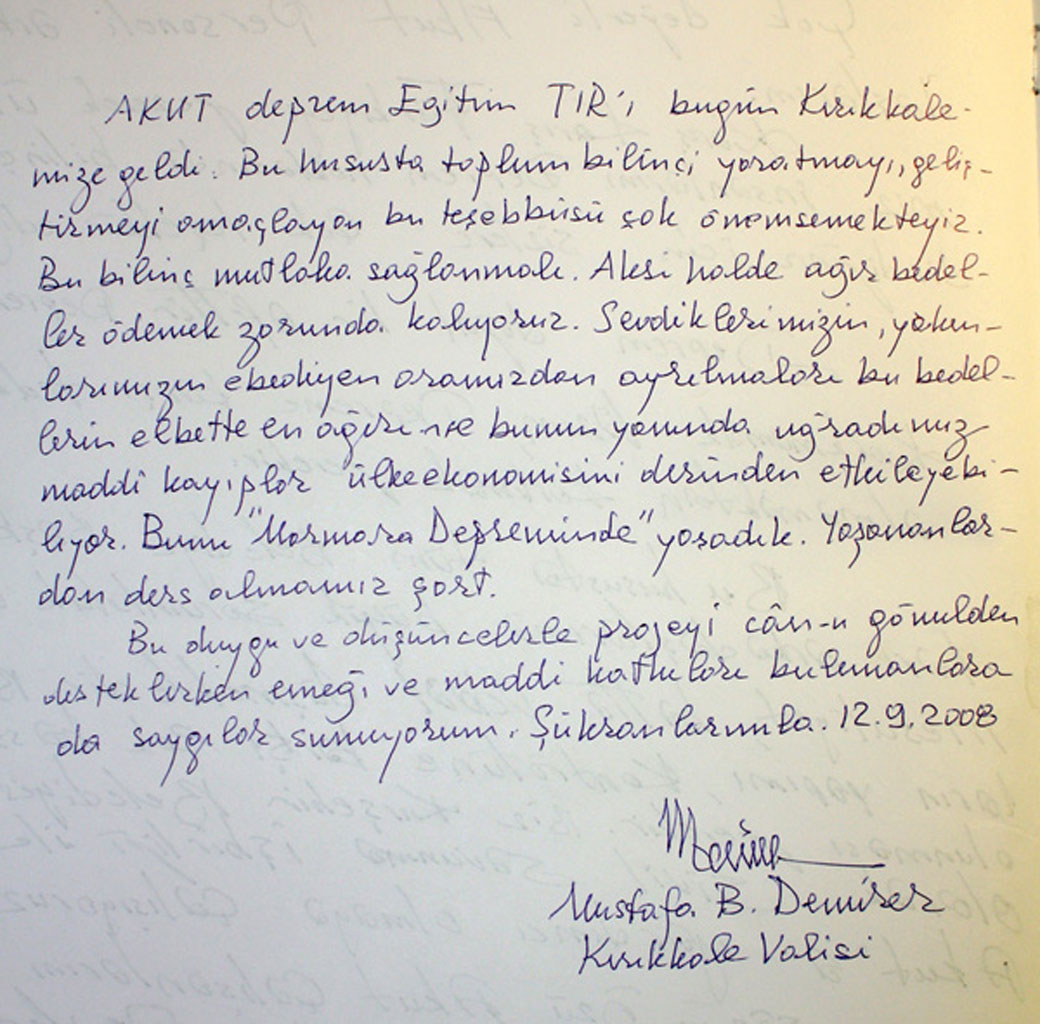 AKUT deprem Eğitim TIR'ı bugün Kırıkkale-
mize geldi. Bu hususta toplum bilinçi yaratmayı, geliş-
tirmeyi amaçlayan bu teşebbüsü çok önemsemekteyiz.
Bu bilinç mutlaka sağlanmalı. Aksi halde ağır bedel-
ler ödemek zorunda kalıyoruz. Sevdiklerimizin, yakın-
larımızın ebediyen aramızdan ayrılmaları bu bedel-
lerin elbette en ağırı ise bunun yanında uğradımız
maddi kayıplar ülke ekonomisini derinden etkileyebi-
liyor. Bunu "Marmara Depreminde" yaşadık. Yaşananlar-
dan ders almamız şart.
Bu duygu ve düşüncelerle projeyi cân-ı gönülden
desteklerken emeği ve maddi katkıları bulunanlara
da saygılar sunuyorum. Şükranlarımla. 12.9.2008
Mustafa B. Demirer
Kırıkkale Valisi